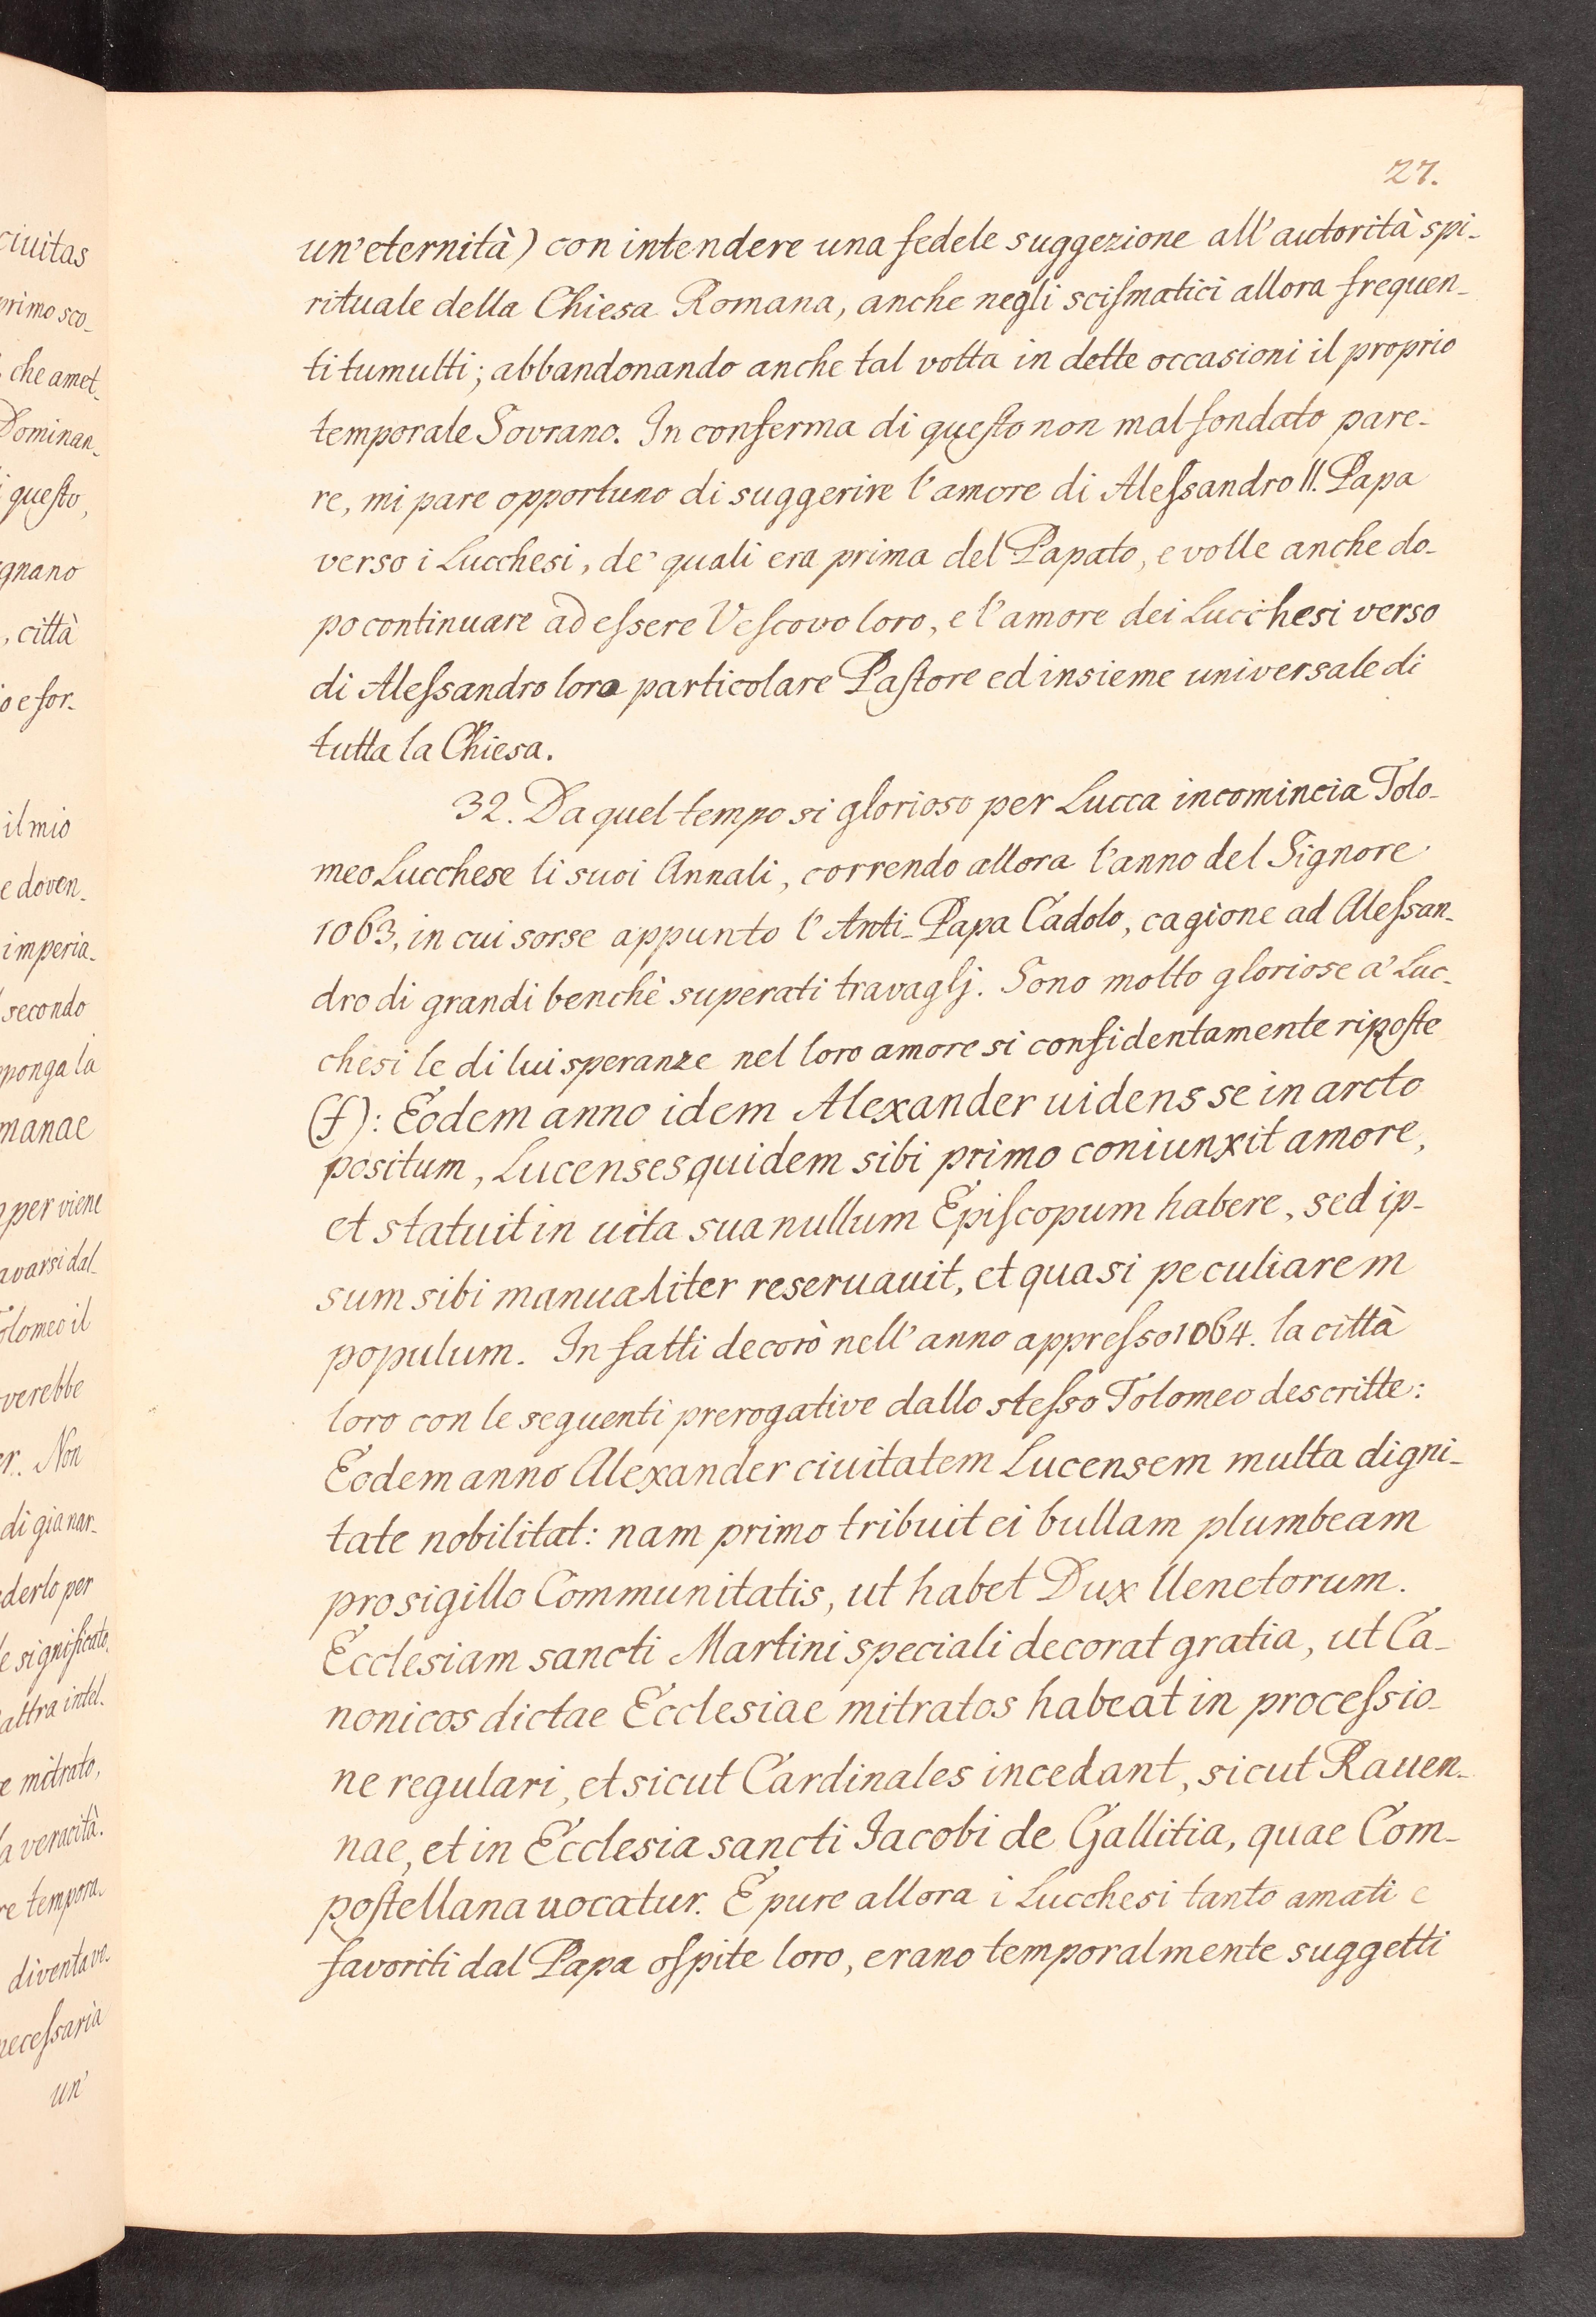 27.
un'eternità) con intendere una fedele suggezione all'autorità spi-
rituale della Chiesa Romana, anche negli scismatici allora frequen-
ti tumulti; abbandonando anche tal volta in dette occasioni il proprio
temporale Sovrano. In conferma di questo non mal fondato pare-
re, mi pare opportuno di suggerire l'amore di Alessandro II. Papa
verso i Lucchesi, de' quali era prima del Papato, e volle anche do-
po continuare ad essere Vescovo loro, e l'amore dei Lucchesi verso
di Alessandro loro particolare Pastore ed insieme universale di
tutta la Chiesa.
32. Da quel tempo si glorioso per Lucca incomincia Tolo-
meo Lucchese li suoi Annali, correndo allora l'anno del Signore
1063, in cui sorse appunto l'Anti-Papa Cadolo, cagione ad Alessan-
dro di grandi benchè superati travaglj. Sono molto gloriose a' Luc-
chesi le di lui speranze nel loro amore si confidentamente riposte
(f): Eodem anno idem Alexander uidens se in arcto
positum, Lucenses quidem sibi primo coniunxit amore,
et statuit in uita sua nullum Episcopum habere, sed ip-
sum sibi manualiter reseruauit, et quasi peculiarem
populum. In fatti decorò nell'anno appresso 1064. la città
loro con le seguenti prerogative dallo stesso Tolomeo descritte:
Eodem anno Alexander ciuitatem Lucensem multa digni-
tate nobilitat: nam primo tribuit ei bullam plumbeam
pro sigillo Communitatis, ut habet Dux Uenetorum.
Ecclesiam sancti Martini speciali decorat gratia, ut Ca-
nonicos dictae Ecclesiae mitratos habeat in processio-
ne regulari, et sicut Cardinales incedant, sicut Rauen-
nae, et in Ecclesia sancti Iacobi de Gallitia, quae Com-
postellana uocatur. E pure allora i Lucchesi tanto amati e
favoriti dal Papa ospite loro, erano temporalmente suggetti